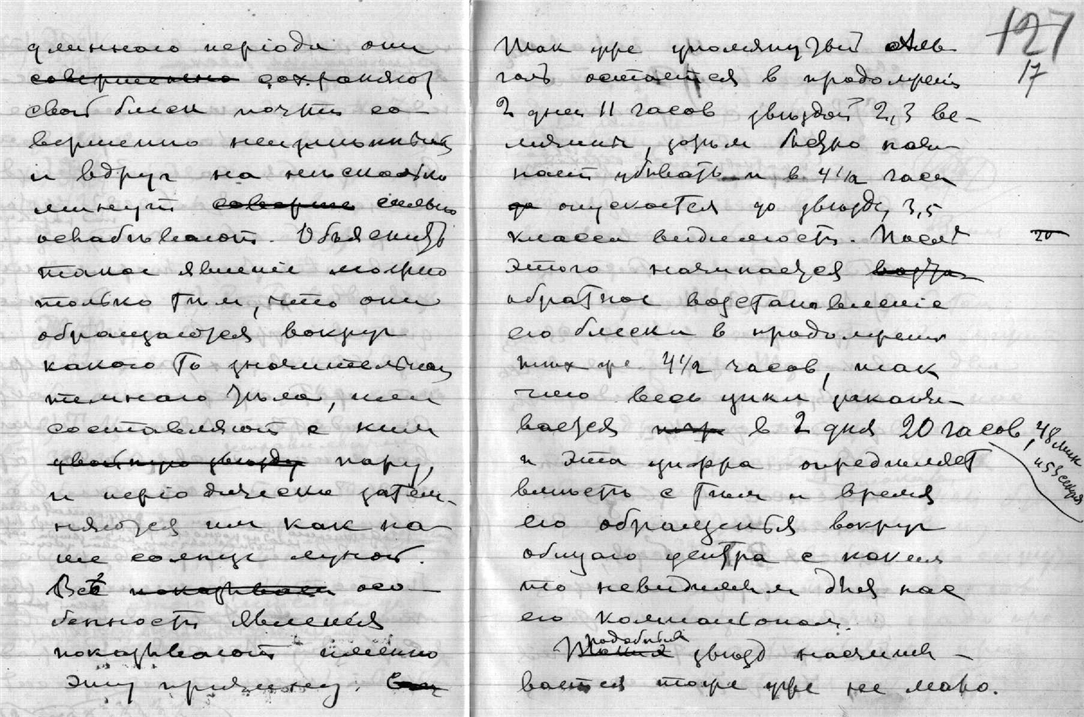 длиннаго періода они
совершенно сохраняют
свой блеск почти со-
вершенно неизменным
и вдруг на несколько
минут соверше сильно
ослабевают. Объяснить
такое явление можно
только тем, что они
обращаются вокруг
какого то значительнаго
темнаго тела, или
составляют с ним
двойную звезду пару,
и периодически затем-
няются им как на-
ше солнце луной.
Все показывает осо-
бенности явления
показывают именно
эту причину.
127
17
Так уже упомянутый Аль-
голь остается в продолжении
2 дней 11 часов звездой 2,3 ве-
личины, затем быстро начи-
нает убывать и в 4 1/2 часа
опускается до звезды 3,5
класса видимости. После
20
этого начинается
обратное возстановление
его блеска в продолжении
тех же 4 1/2 часов, так
что весь цикл заканчи-
вается в 2 дня 20 часов, 48 мин
и 53 секунд
и эта цифра определяет
вместе с тем и время
его обращения вокруг
общаго центра с каким
то невидимым для нас
его компаньоном.
Подобных звезд насчиты-
вается тоже уже не мало.